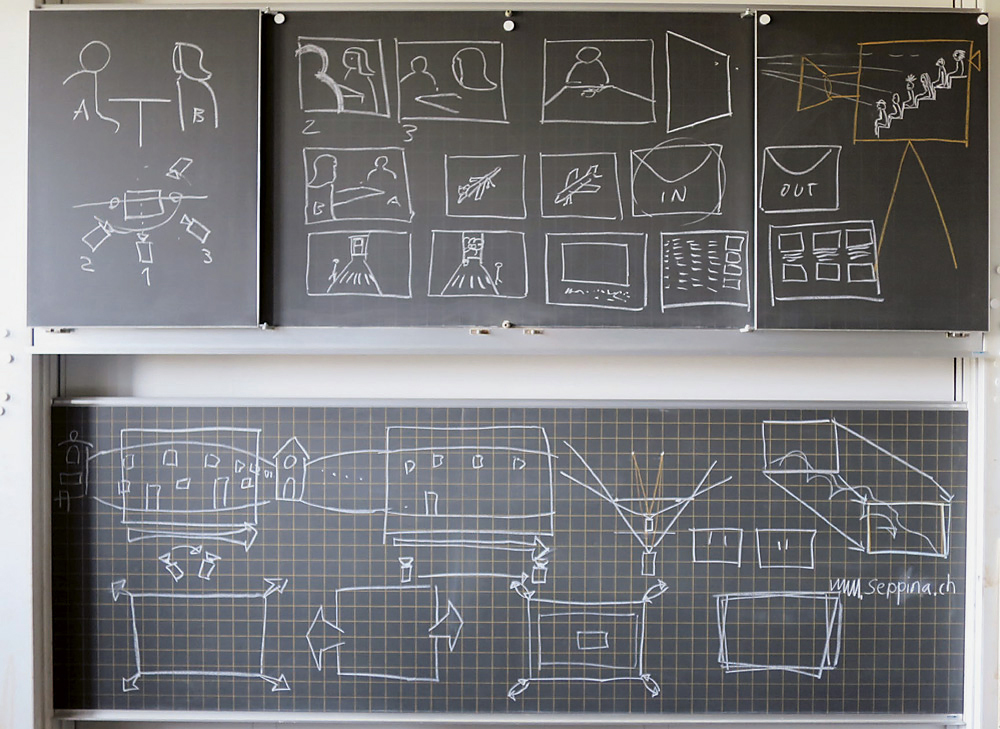 A
B
2
1
3
2
3
B
A
IN
OUT
www.seppina.ch